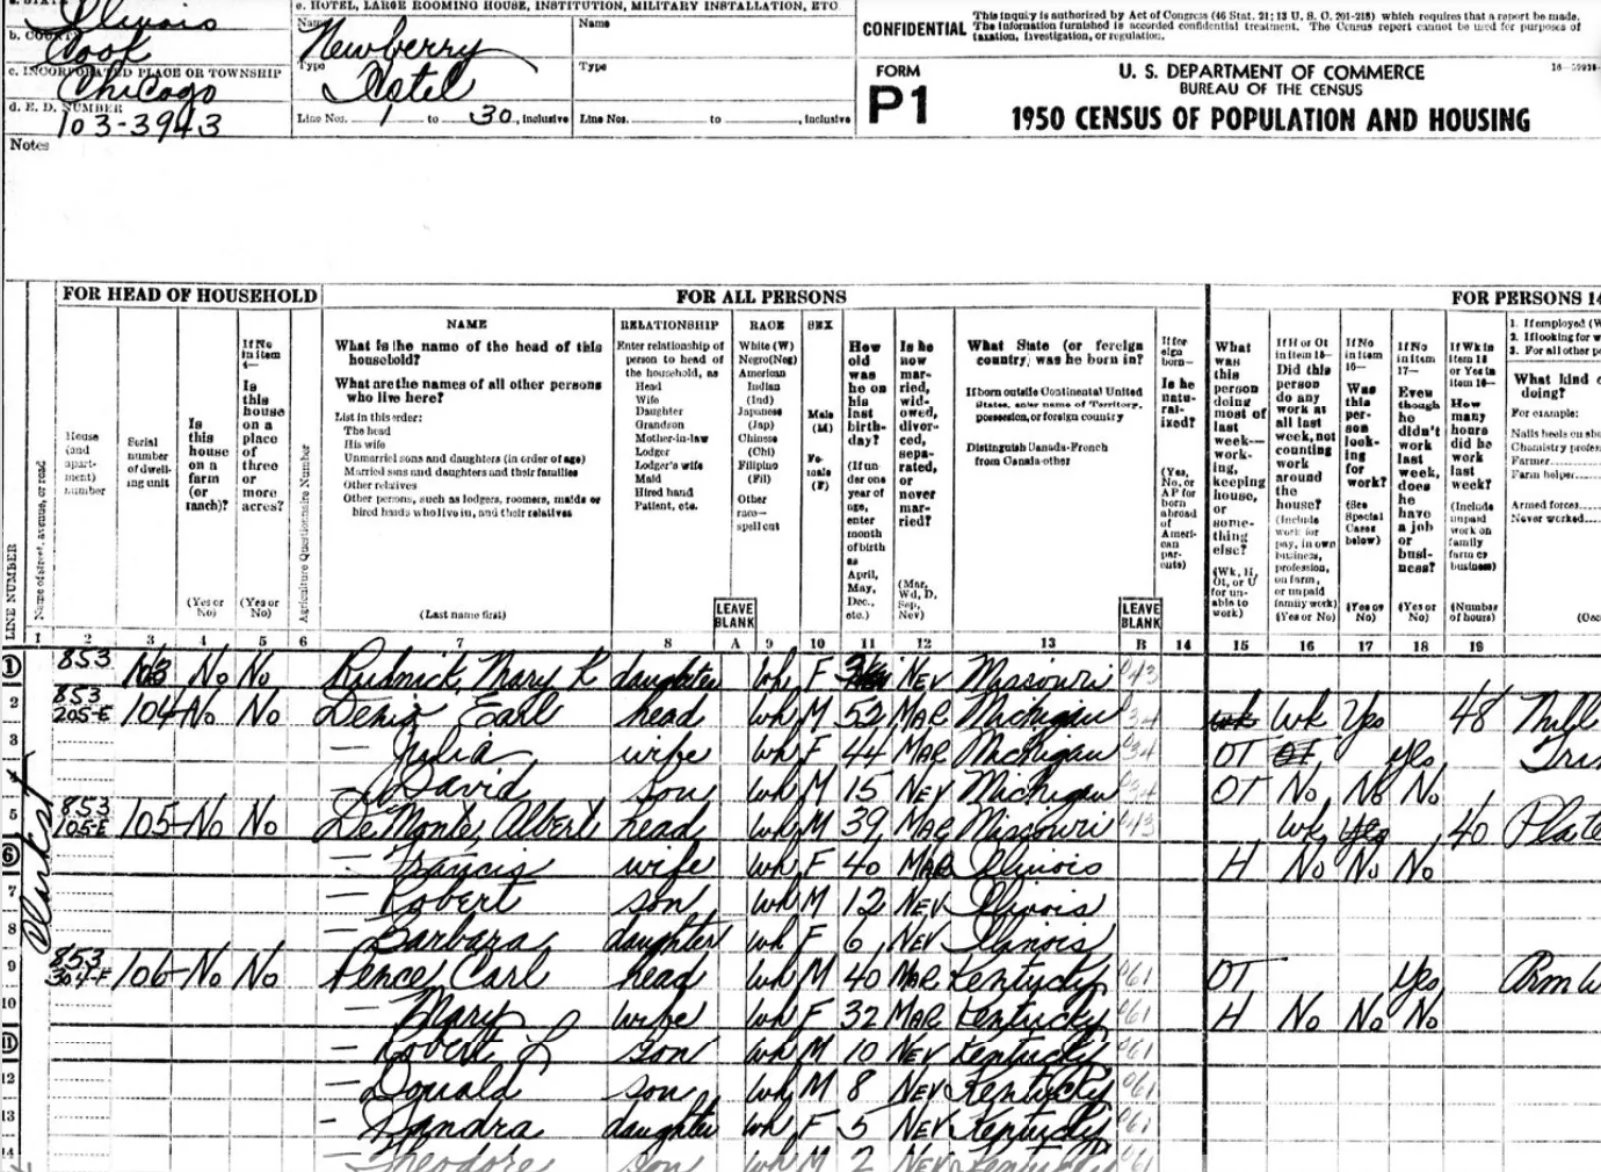 a. STATE Illinois
b. COUNTY Cook
c. INCORPORATED PLACE OR TOWNSHIP
Chicago
d. E. D. NUMBER
103-3943
e. HOTEL, LARGE ROOMING HOUSE, INSTITUTION, MILITARY INSTALLATION, ETC
Name Newberry
Type Hotel
Line Nos. 1 to 30, inclusive
Name
Type
Line Nos. to , inclusive
CONFIDENTIAL
This inquiry is authorized by Act of Congress (46 Stat. 21; 13 U. S. C. 201-218) which requires that a report be made.
The information furnished is accorded confidential treatment. The Census report cannot be used for purposes of
taxation, investigation, or regulation.
FORM
P1
U. S. DEPARTMENT OF COMMERCE
BUREAU OF THE CENSUS
1950 CENSUS OF POPULATION AND HOUSING
Notes
FOR HEAD OF HOUSEHOLD
FOR ALL PERSONS
FOR PERSONS 14
LINE NUMBER
Name of street, avenue, or road
House (and apartment) number
Serial number of dwelling unit
Is this house on a farm (or ranch)?
(Yes or No)
If No in item 4—
Is this house on a place of three or more acres?
(Yes or No)
Agriculture Questionnaire Number
NAME
What is the name of the head of this household?
What are the names of all other persons who live here?
List in this order:
The head
His wife
Unmarried sons and daughters (in order of age)
Married sons and daughters and their families
Other relatives
Other persons, such as lodgers, roomers, maids or
hired hands who live in, and their relatives
(Last name first)
RELATIONSHIP
Enter relationship of person to head of the household, as
Head
Wife
Daughter
Grandson
Mother-in-law
Lodger
Lodger's wife
Maid
Hired hand
Patient, etc.
LEAVE BLANK
RACE
White (W)
Negro(Neg)
American Indian (Ind)
Japanese (Jap)
Chinese (Chi)
Filipino (Fil)
Other race— spell out
SEX
Male (M)
Female (F)
How old was he on his last birthday?
(If under one year of age, enter month of birth as April, May, Dec., etc.)
Is he now married, widowed, divorced, separated, or never married?
(Mar, Wd, D, Sep, Nev)
What State (or foreign country) was he born in?
If born outside Continental United States, enter name of Territory, possession, or foreign country
Distinguish Canada-French from Canada-other
LEAVE BLANK
If foreign born—
Is he naturalized?
(Yes, No, or AP for born abroad of American parents)
What was this person doing most of last week— working, keeping house, or something else?
(Wk, H, Ot, or U for unable to work)
If H or Ot in item 15—
Did this person do any work at all last week, not counting work around the house?
(Include work for pay, in own business, profession, on farm, or unpaid family work)
(Yes or No)
If No in item 16—
Was this person looking for work?
(See Special Cases below)
(Yes or No)
If No in item 17—
Even though he didn't work last week, does he have a job or business?
(Yes or No)
If Wk in item 15 or Yes in item 16—
How many hours did he work last week?
(Include unpaid work on family farm or business)
(Number of hours)
1. If employed (W
2. If looking for w
3. For all other p
What kind o
doing?
For example:
Nails heels on sho
Chemistry profes
Farmer
Farm helper
Armed forces
Never worked
(Occ
1 2 3 4 5 6 7 8 A 9 10 11 12 13 B 14 15 16 17 18 19
Clark st
1 853 103 No No Rudnick, Mary R daughter Wh F Nev Missouri 043
2 853 205-E 104 No No Denis Earl head Wh M 52 Mar Michigan 034 Wk Wk Yes 48
3 — Julia wife Wh F 44 Mar Michigan 034 OT OT Yes
4 — David son Wh M 15 Nev Michigan 034 OT No No No
5 853 105-E 105 No No De Monte, Albert head Wh M 39 Mar Missouri 043 Wk Yes 40 Plate
6 — Francis wife Wh F 40 Mar Illinois H No No No
7 — Robert son Wh M 12 Nev Illinois
8 — Barbara daughter Wh F 6 Nev Illinois
9 853 304-E 106 No No Pence, Carl head Wh M 40 Mar Kentucky 061 OT Yes Arm
10 — Mary wife Wh F 32 Mar Kentucky 061 H No No No
11 — Robert L son Wh M 10 Nev Kentucky 061
12 — Donald son Wh M 8 Nev Kentucky 061
13 — Sandra daughter Wh F 5 Nev Kentucky 061
14 — Theodore son Wh M 2 Nev Kentucky 061